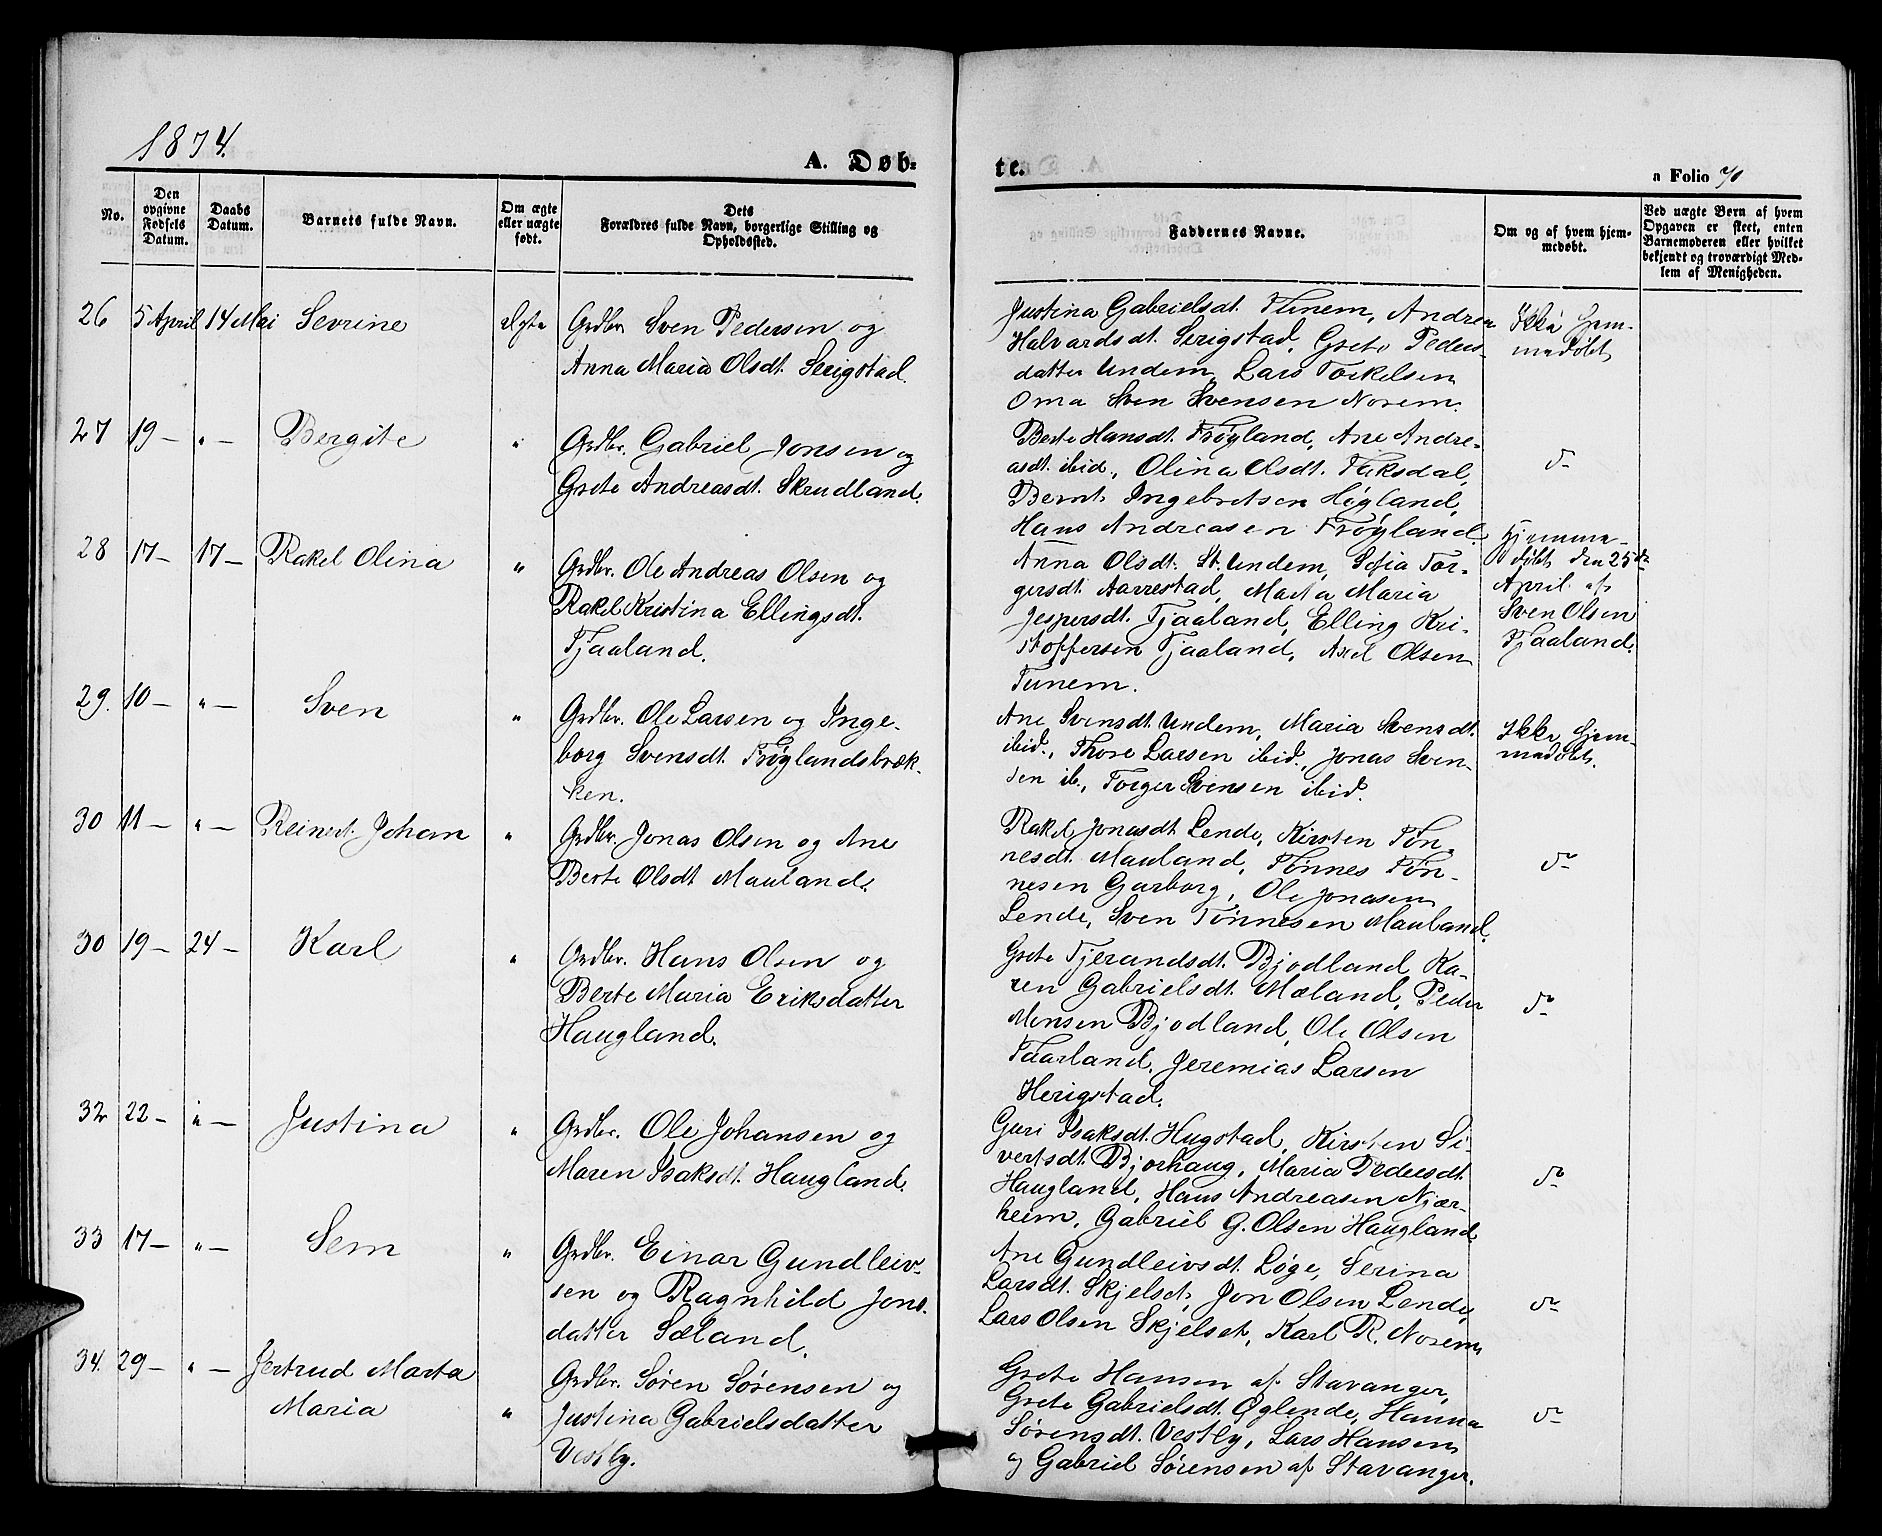 1874.
A. Døb-
te.
n Folio
No.
Den opgivne Fødsels Datum.
Daabs Datum.
Barnets fulde Navn.
Om ægte eller uægte født.
Dets Forældres fulde Navn, borgerlige Stilling og Opholdssted.
Faddernes Navne.
Om og af hvem hjemmedøbt.
Ved uægte Børn af hvem Opgaven er skeet, enten Barnemoderen eller hvilket bekjendt og troværdigt Medlem af Menigheden.
26 5 April 14 Mai Sevrine Ægte Grdbr. Sven Pedersen og
Anna Maria Olsdt. Serigstad.
Justina Gabrielsdt. Tunem, Andrea
Halvardsdt. Serigstad, Grete Peders-
datter Undem, Lars Torkelsen
Oma Sven Svensen Norem.
Ikke hjem-
medøbt
27 19 – " – Bergite " Grdbr. Gabriel Jonsen og
Grete Andreasdt. Skrudland.
Berte Hansdt. Frøyland, Ane Andre-
asdt. ibid., Olina Olsdt. Taksdal,
Bernt Ingebretsen Høgland,
Hans Andreasen Frøyland.
do
28 17 – 17 – Rakel Olina " Grdbr. Ole Andreas Olsen og
Rakel Kristina Ellingsdt.
Tjaaland.
Anna Olsdt. St. Undem, Sofia Tor-
gersdt. Aarrestad, Marta Maria
Jespersdt. Tjaaland, Elling Kri-
stoffersen Tjaaland, Axel Olsen
Tunem.
Hjemme-
døbt den 25de
April af
Sven Olsen
Tjaaland.
29. 10 – " – Sven " Grdbr. Ole Larsen og Inge-
borg Svensdt. Frøylandsbræk-
ken.
Ane Svensdt. Undem, Maria Svensdt.
ibid., Thore Larsen ibid., Jonas Sven-
sen ib., Torger Svensen ibid.
Ikke hjem-
medøbt.
30 11 – " – Reinert Johan " Grdbr. Jonas Olsen og Ane
Berte Olsdt Mauland.
Rakel Jonasdt. Lende, Kirsten Tøn-
nesdt. Mauland, Tønnes Tøn-
nesen Garborg, Ole Jonasen
Lende, Sven Tønnesen Mauland.
do
30 19 – 24 – Karl " Grdbr. Hans Olsen og
Berte Maria Eriksdatter
Haugland.
Grete Tjerandsdt. Bjodland, Ka-
ren Gabrielsdt. Mæland, Peder
Monsen Bjodland, Ole Olsen
Taarland, Jeremias Larsen
Herigstad.
do
32 22 – " – Justina " Grdbr. Ole Johansen og
Maren Isaksdt. Haugland.
Guri Isaksdt. Hugstad, Kirsten Si-
vertsdt. Bjorhaug, Maria Pedersdt.
Haugland, Hans Andreasen Njær-
heim, Gabriel G. Olsen Haugland
do
33 17 – " – Sem " Grdbr. Einar Gundleiv-
sen og Ragnhild Jons-
datter Sæland.
Ane Gundleivsdt. Løge, Serina
Larsdt. Skjelset, Jon Olsen Lende,
Lars Olsen Skjelset, Karl R. Norem
do
34. 29 – " – Jertrud Marta
Maria " Grdbr. Søren Sørensen og
Justina Gabrielsdatter
Vestly.
Grete Hansen af Stavanger,
Grete Gabrielsdt. Øglende, Hanna
Sørensdt. Vestly, Lars Hansen
og Gabriel Sørensen af Stavanger.
do